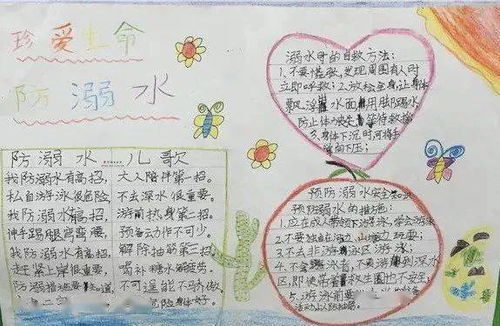 珍爱生命
防溺水
防溺水儿歌
我防溺水有高招,
私自游泳很危险
我防溺水有高招,
伸手踢腿弯弯腰
我防溺水有高招,
往上岸很重要,
防溺措施要
大人陪伴第一招。
不去深水很重要。
游前热身第二招。
预备动作不可少。
解除抽筋第三招
喝补糖水解疲劳。
不可逞能不马乔
溺水时的自救方法:
1、不要慌张,发现周围有人时
立即呼救;2、放松全身,让身体
飘浮水面,用脚踢水
防止体力丧失,等待救援
3、身体下沉时,可将手
掌向下压;
预防溺水安全知识
预防溺水的措施:
1、应在成人带领下游泳,学会游泳
2、不要独自在河边、山塘边玩耍;
3、不去非游泳区游泳;
4、不会游泳者,不要游到深水
区,即使带着救生圈也不安全;
5、游泳前要